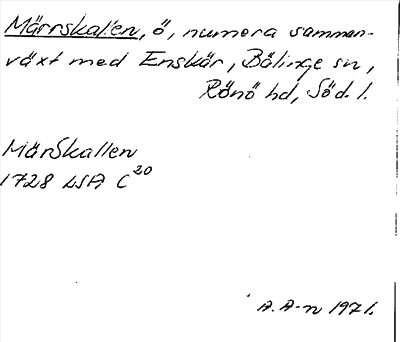 Märrskallen, ö, numera samman-
växt med Enskär, Bälinge sn,
Rönö hd, Söd. l.
MärSkallen
1728 LSA C 20
A. A-n 1971.